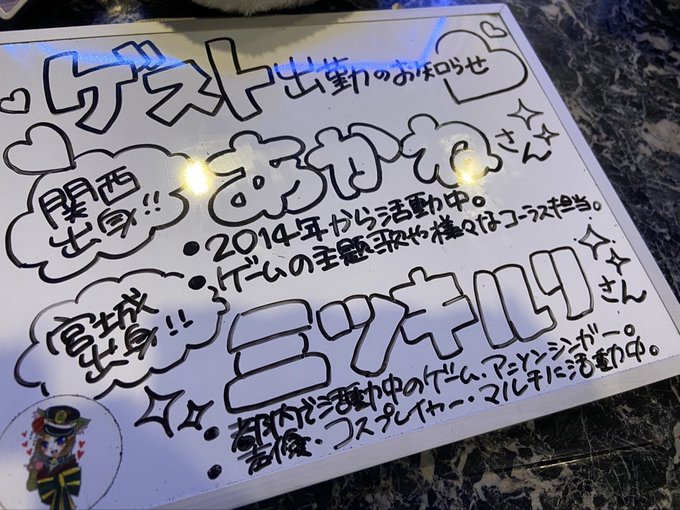 ゲスト出勤のお知らせ
関西
出身!!
あかねさん
・2014年から活動中。
・ゲームの主題歌や様々なコーラス担当。
宮城
出身!!
ミツキルリさん
・都内で活動中のゲーム・アニソンシンガー。
声優・コスプレイヤー・マルチに活動中。